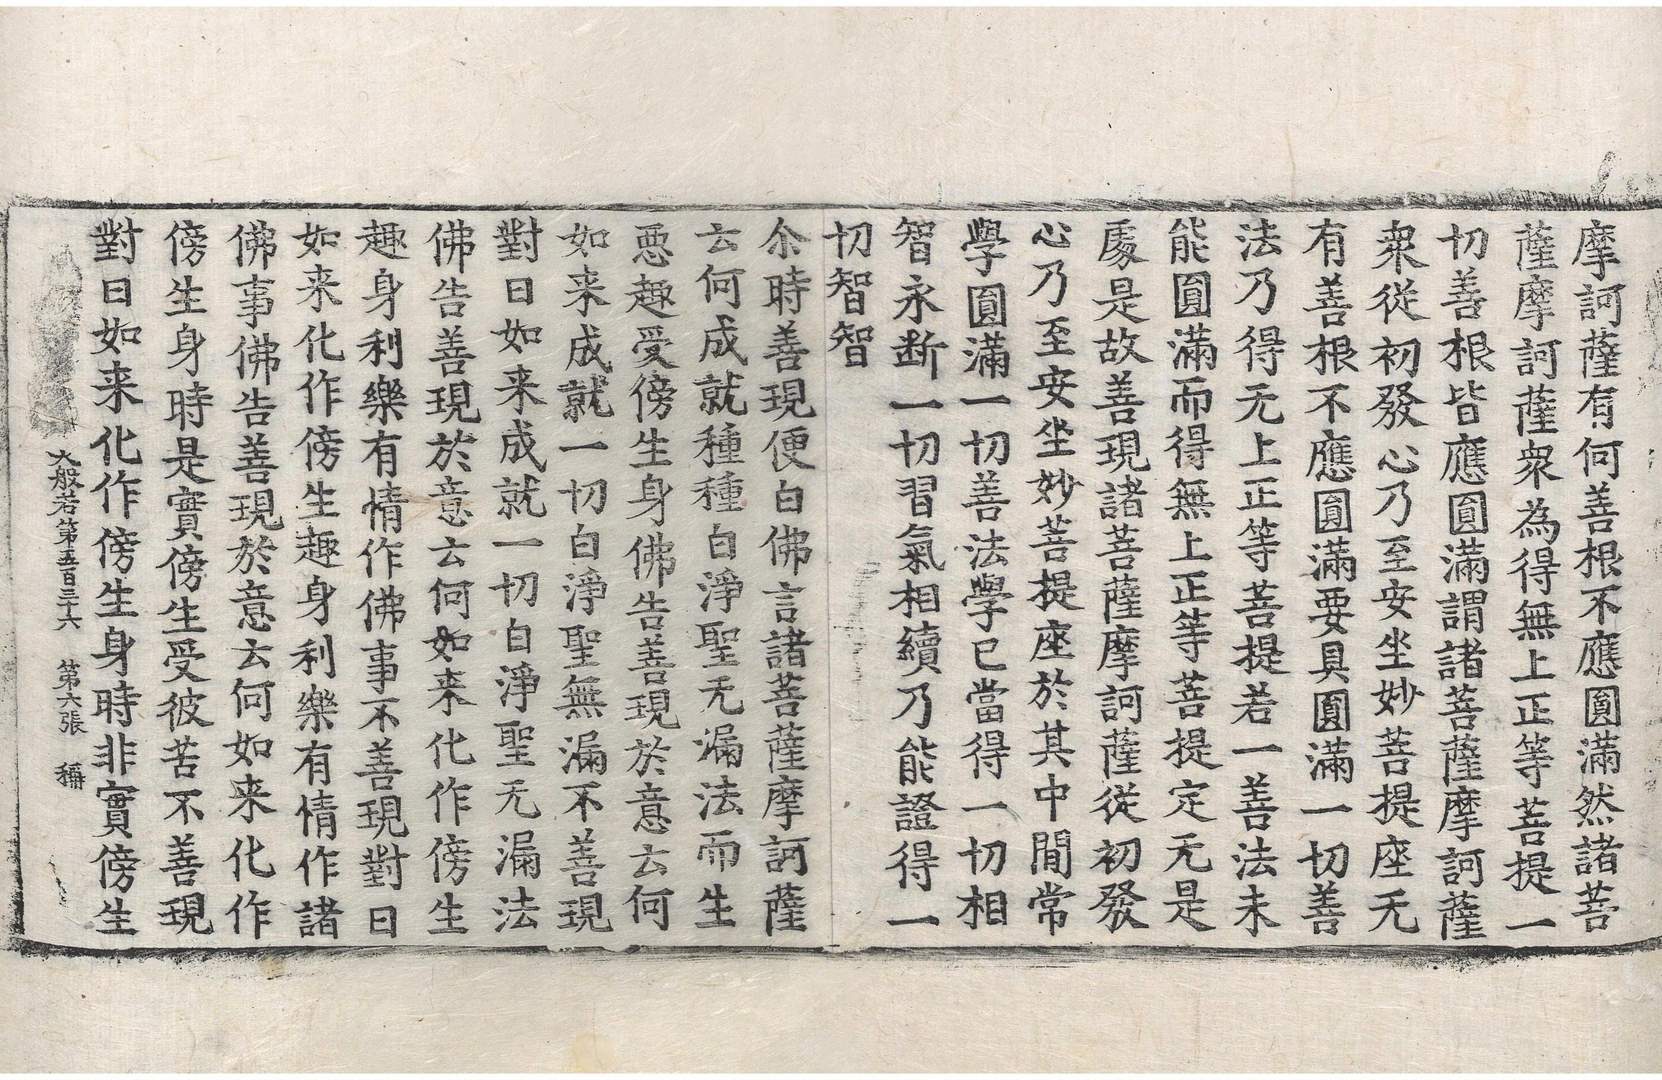 摩訶薩有何善根不應圓滿然諸菩
薩摩訶薩衆為得無上正等菩提一
切善根皆應圓滿謂諸菩薩摩訶薩
衆從初發心乃至安坐妙菩提座无
有善根不應圓滿要具圓滿一切善
法乃得无上正等菩提若一善法未
能圓滿而得無上正等菩提定无是
處是故善現諸菩薩摩訶薩從初發
心乃至安坐妙菩提座於其中閒常
學圓滿一切善法學已當得一切相
智永断一切習氣相續乃能證得一
切智智
尒時善現便白佛言諸菩薩摩訶薩
云何成就種種白淨聖无漏法而生
惡趣受傍生身佛告善現於意云何
如来成就一切白淨聖無漏不善現
對曰如来成就一切白淨聖无漏法
佛告善現於意云何如来化作傍生
趣身利樂有情作佛事不善現對曰
如来化作傍生趣身利樂有情作諸
佛事佛告善現於意云何如来化作
傍生身時是實傍生受彼苦不善現
對曰如来化作傍生身時非實傍生
大般若第五百三十六 第六張 稱